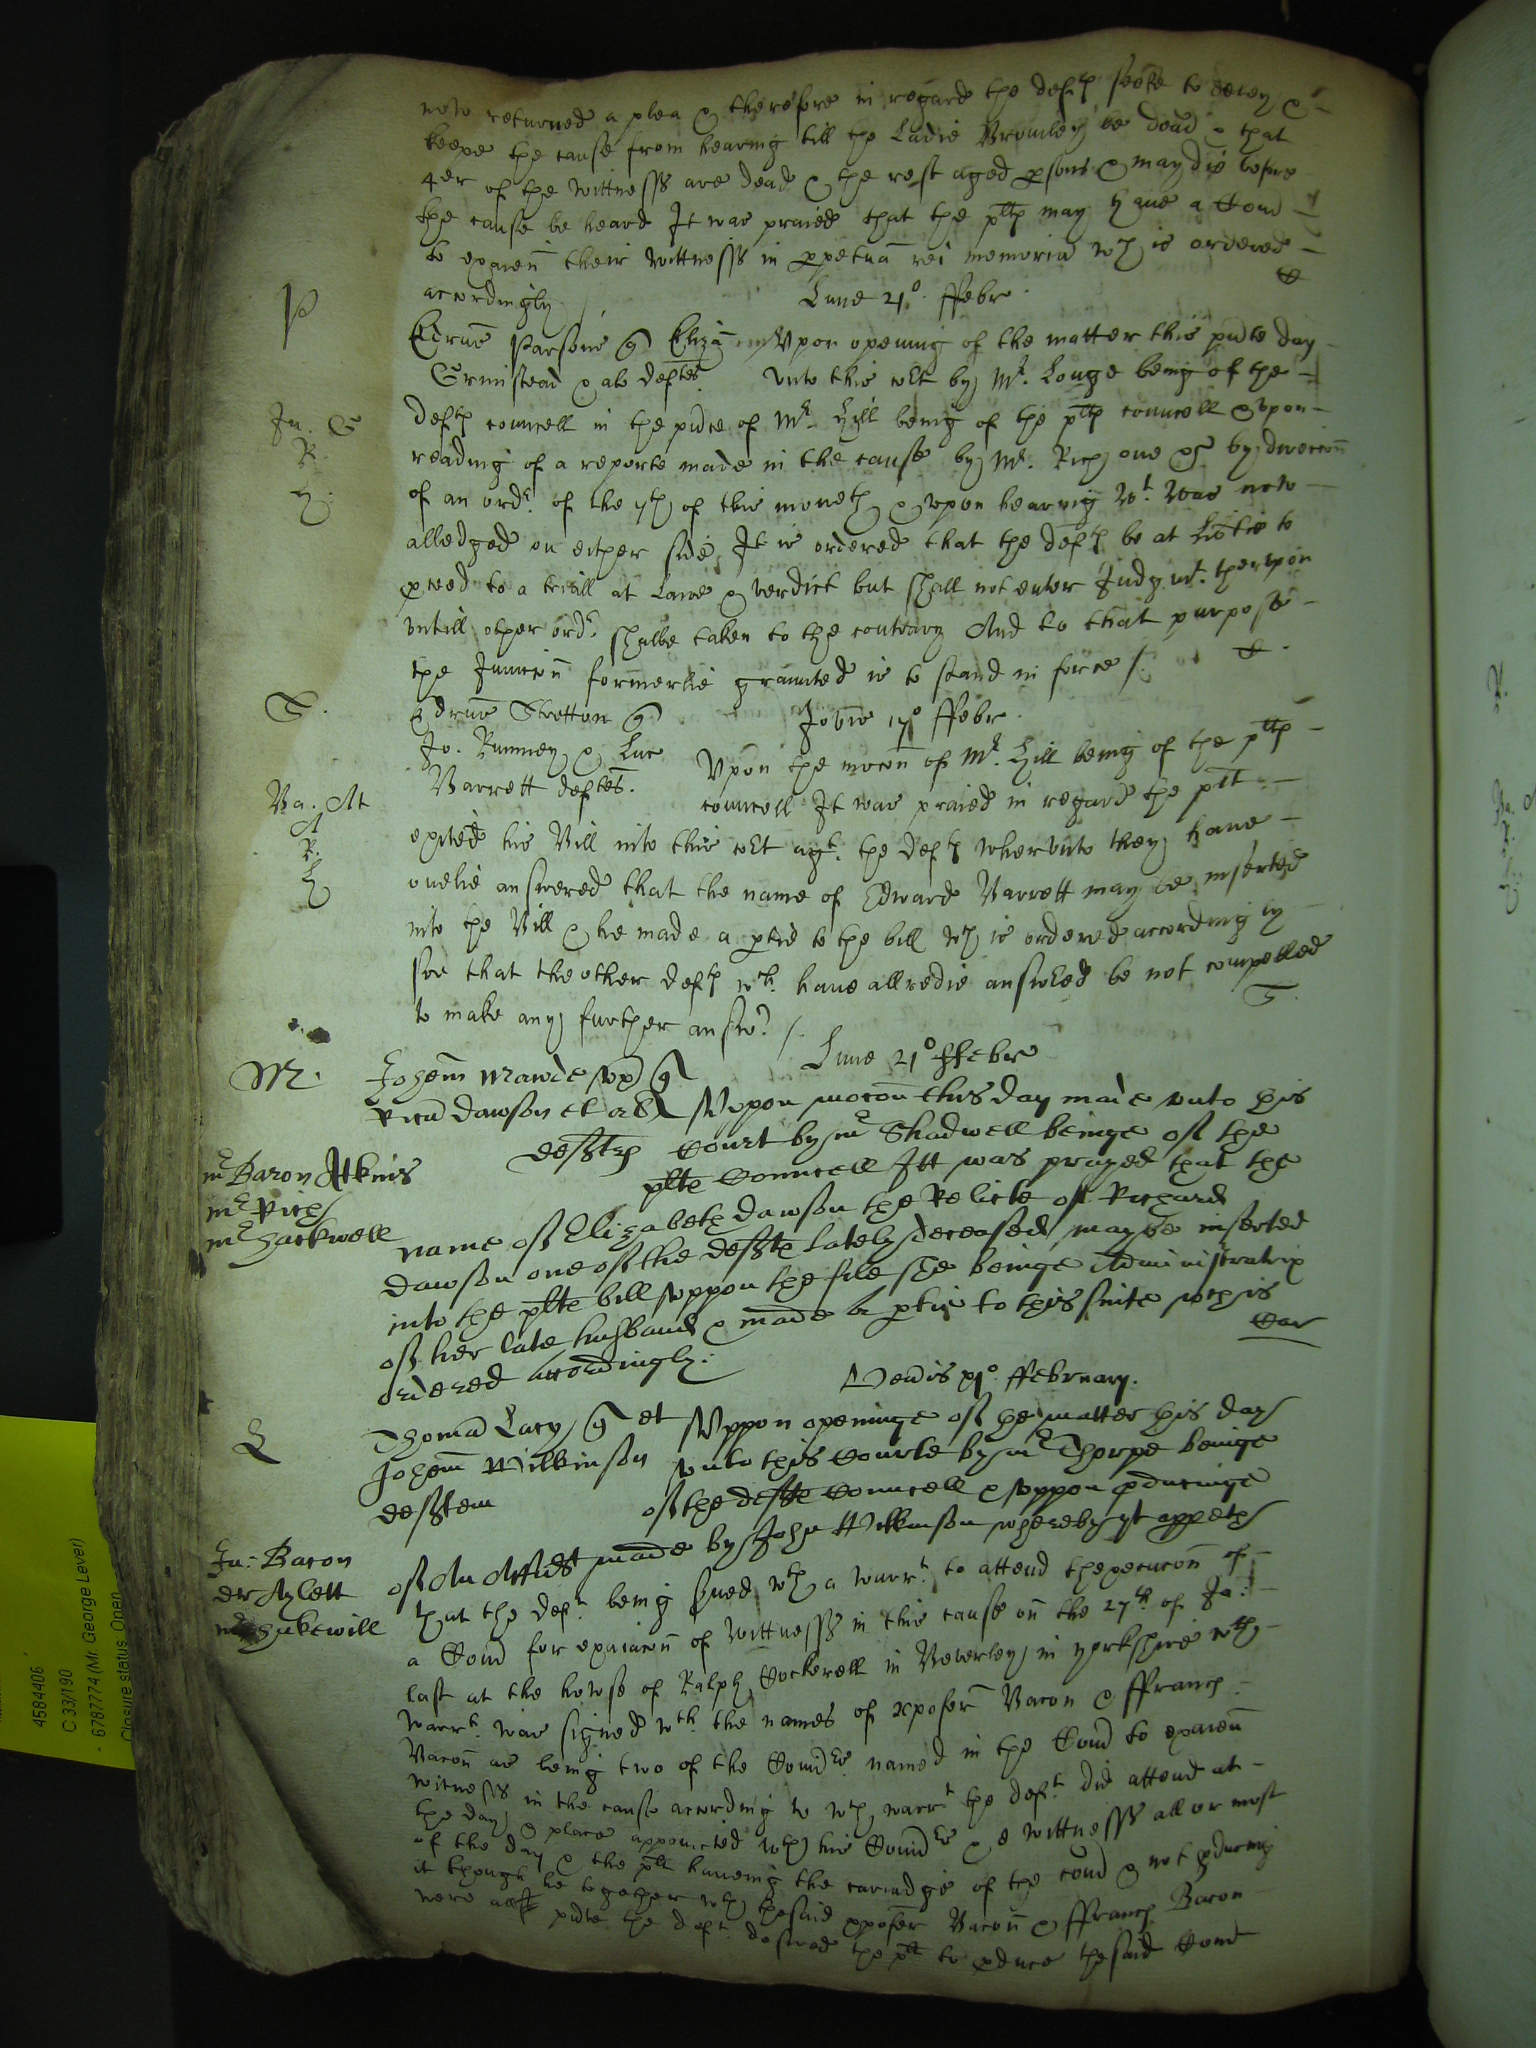 now returned a plea & therefore in regard the defts seeke to delay &
keepe the cause from hearing till the Ladie Bromley be dead & that
4er of the wittnesses are dead & the rest aged psons & may die before
the cause be heard It was praied that the plts may have a Comd
to examen their wittnesses in ppetua rei memoria wch is ordered
accordingly
Lune 21o. ffebr.
P
Parsons Eliza Vpon opening of the matter this pnte day
Grinstead & als deftes. vnto this cort by Mr. Longe being of the
Ju. C
R.
H.
defts councell in the pnce of Mr. Hill being of the plts councell & vpon
reading of a reporte made in the cause by Mr. Rich one &c by direccon
of an ordr. of the 7th of this moneth & vpon hearing wt. was now
alledged on either side It is ordered that the defts be at libtie to
pceed to a triall at Lawe & verdict but shall not enter Judgmt. therevpon
vntill other ordr. shalbe taken to the contrary And to that purpose
the Junccon formerlie graunted is to stand in force
S.
Stretton
Jovis 17o ffebr.
Jo. Rumney & Luc Vpon the mocon of Mr. Hill being of the plts
Barrett deftes. councell It was praied in regard the plt
Ba. At
A
R.
H
exited his Bill into this cort agt. the defts wherevnto they have
onelie answered that the name of Edward Barrett may be inserted
into the Bill & he made a ptie to the bill wch is ordered accordingly
soe that the other defts wch. have allredie answered be not compelled
to make any further answr
Lune 21o ffebr
M.
Johem Mawde
Ricu Dawson et al Vppon mocon this day made vnto this
defts Court by mr Shadwell beinge of the
plts Councell Itt was prayed that the
mr Baron Atkins
mr Rich
mr Hackwell
name of Elizabeth Dawson the Relicte of Richard
Dawson one of the defts lately deceased may be inserted
into the plts bill vppon the file she beinge Administratrix
of her late husband & made a ptie to this suite wch is
ordered accordingly:
21o. ffebruary.
L
Thoma Lacy et Vppon openinge of the matter this day
Johem Wilkinson vnto this Courte by mr Thorpe beinge
of the defts Councell & vppon pducinge
Ju: Bacon
dr Aylett
mr Hakewill
of an Affidt made by John Wilkinson whereby yt appeth
that the deft. being sued wth a warrt. to attend thexecucon of
a Comd for exaiacon of wittnesses in this cause on the 27th of Ja:
last at the howse of Ralph Cockerell in Beverley in yorkshire wch
warrt. was signed wth. the names of xpofer Bacon & ffranc
Bacon as being two of the Comdrs. named in the Comd to examen
witnesses in the cause according to wch warrt the deft. did attend at
the day & place appointed wth his Comdrs & wittnesses all or most
of the day & the plt haveing the carriadge of the comd & not pducing
it though he together wth the said xpofer Bacon & ffranc Bacon
were all pnte the deft. desired the plt to pduce the said Comd
4584406
C 33/190
6787774 (Mr. George Lever)
Closure status: Open